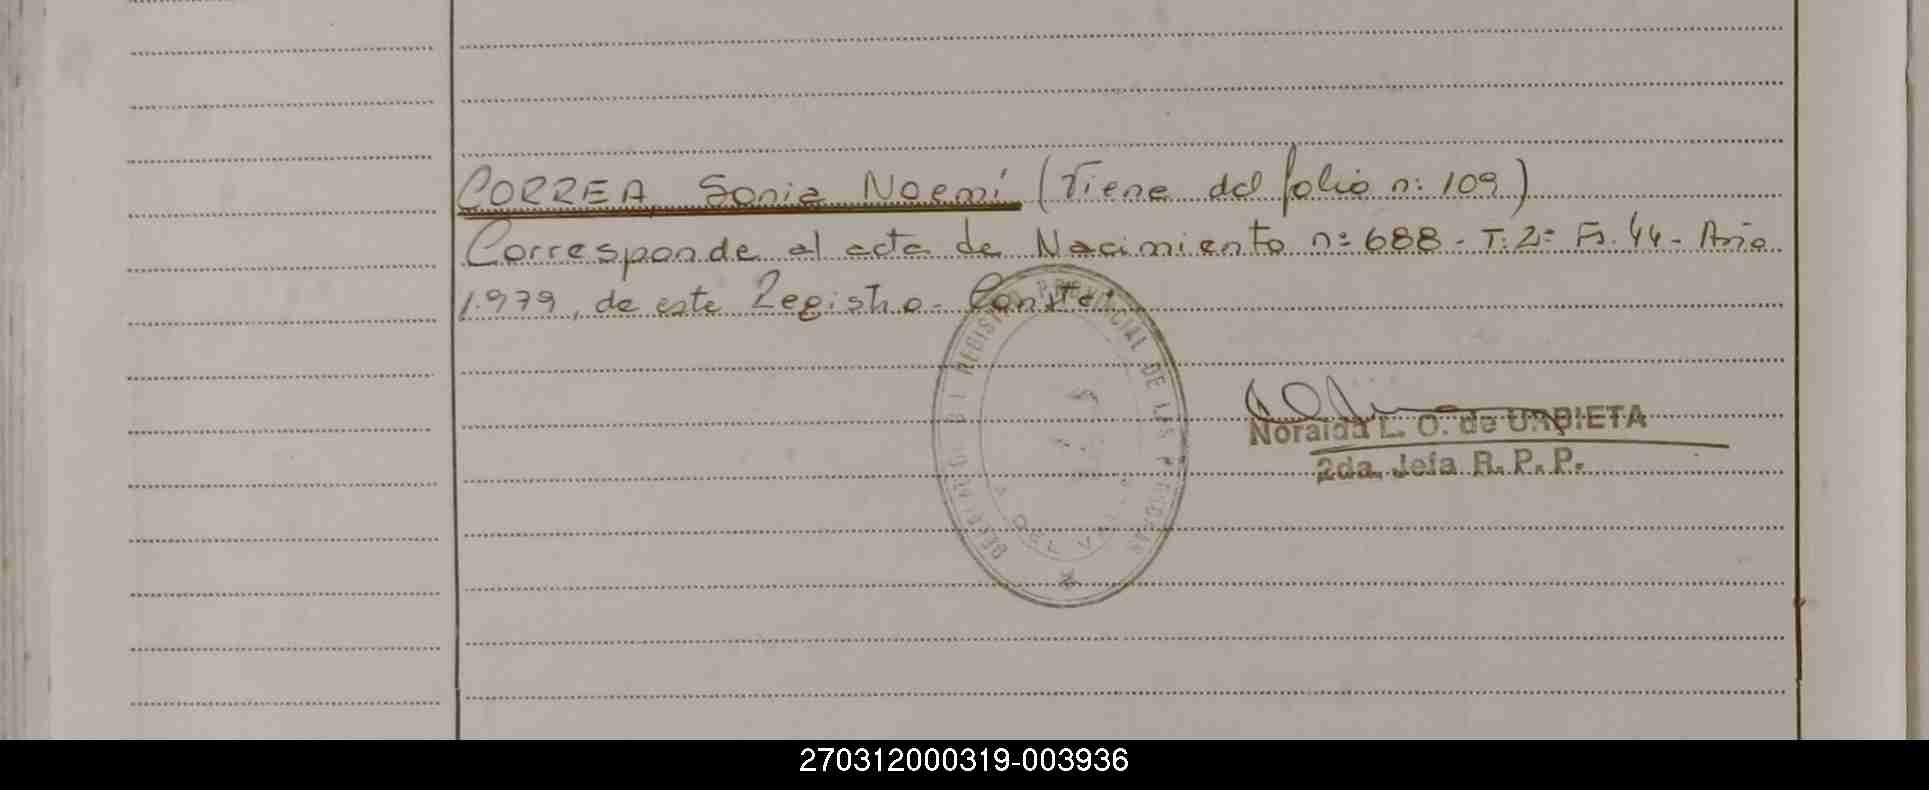 CORREA, Sonia Noemí (Viene del folio n: 109)
Corresponde al acta de Nacimiento nº 688 - T: 2º Fº. 44 - Año
1.979, de este Registro - Conste.
DEL REGISTRO PROVINCIAL DE LAS PERSONAS
Noraida L. O. de URBIETA
2da. Jefa R. P. P.
270312000319-003936